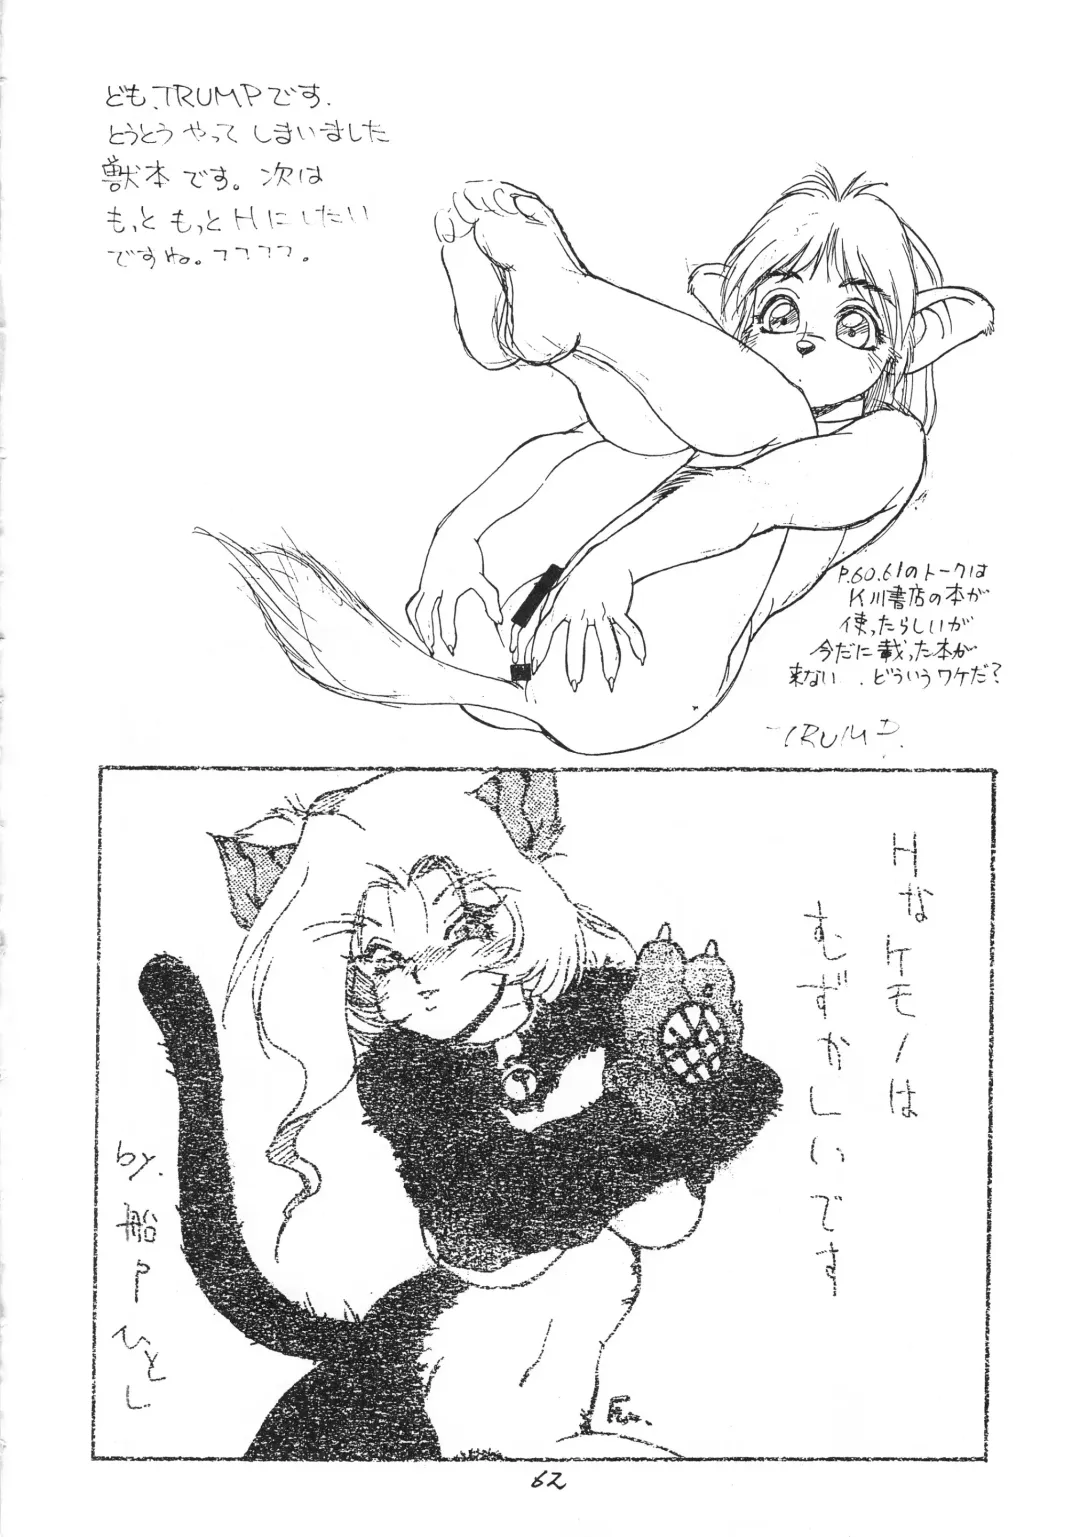 ども、TRUMPです.
とうとう やって しまいました
獣本 です。次は
もっと もっと Hに したい
ですね。フフフフ。
P.60.61のトークは
K川書店の本が
使ったらしいが
今だに載った本が
来ない..どういうワケだ?
TRUMP.
Hなケモノは
むずかしいです
by.船Pひとし
62